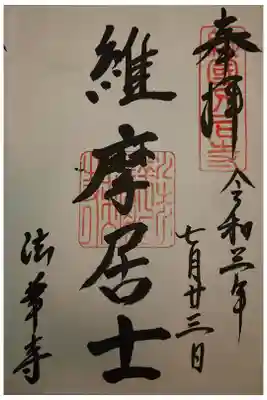 奉拝
令和三年
七月廿三日
維摩居士
法華寺